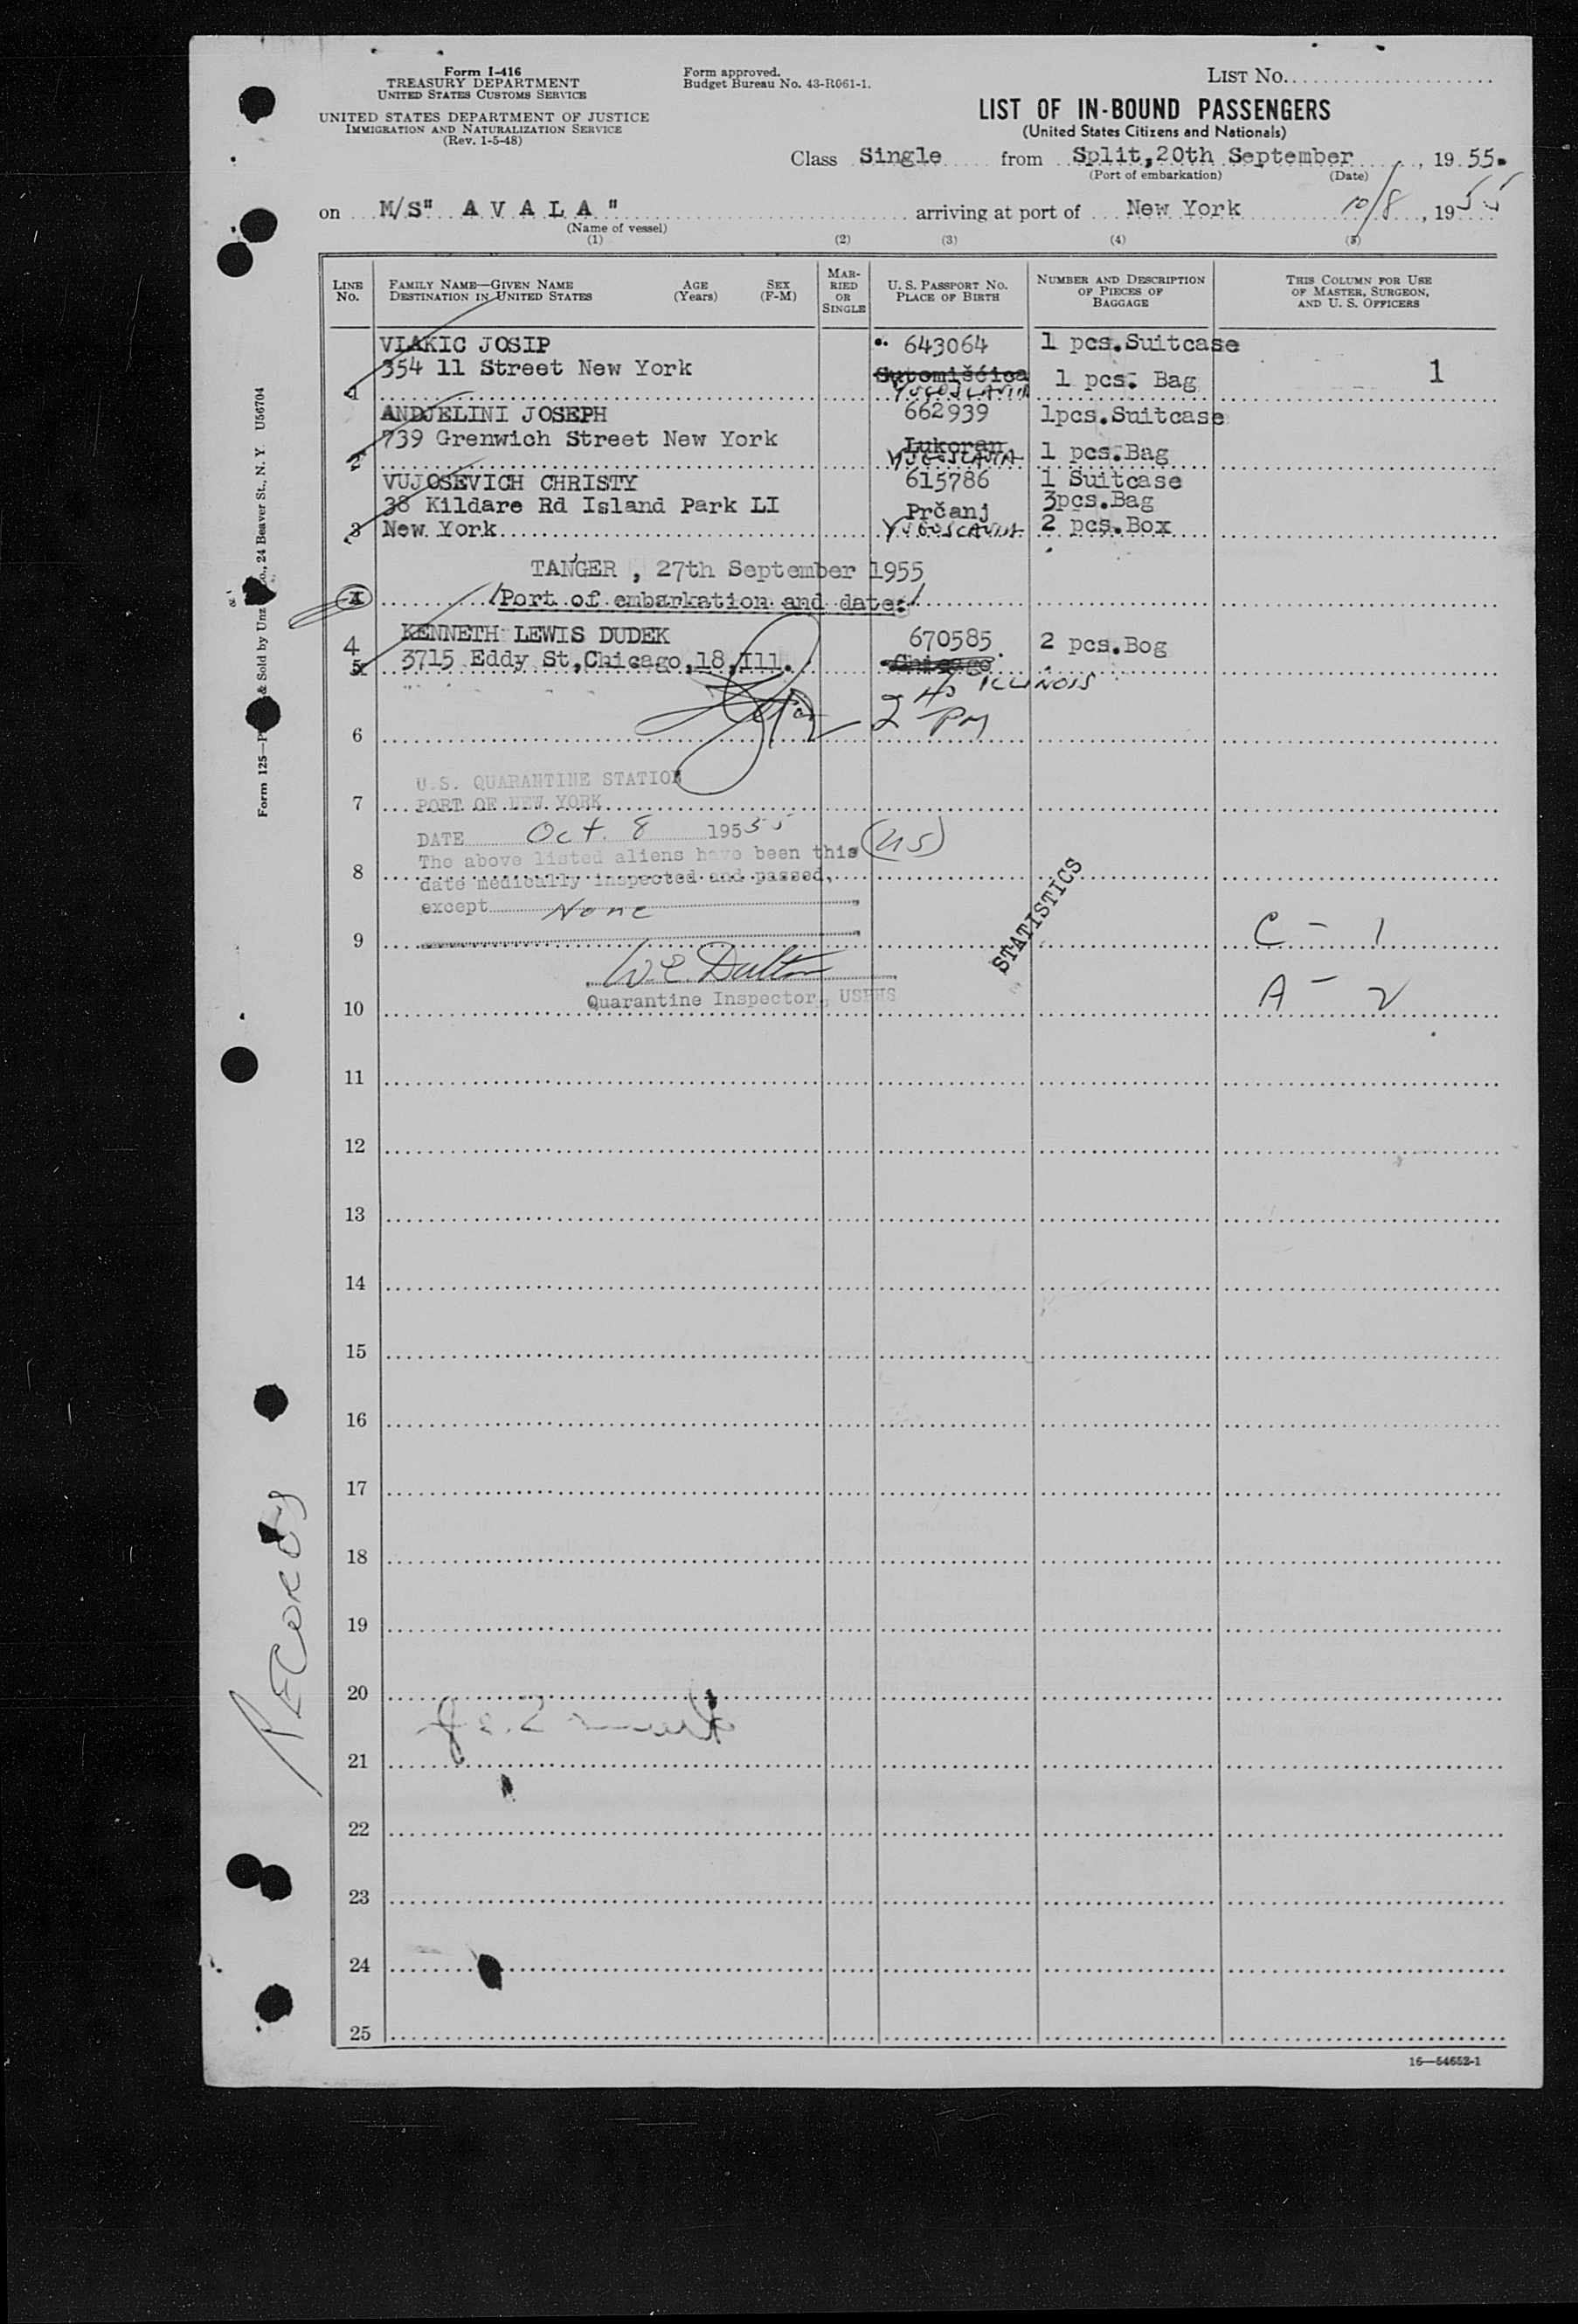 Form I-416
TREASURY DEPARTMENT
UNITED STATES CUSTOMS SERVICE
UNITED STATES DEPARTMENT OF JUSTICE
IMMIGRATION AND NATURALIZATION SERVICE
(Rev. 1-5-48)
Form approved.
Budget Bureau No. 43-R061-1.
LIST NO.
LIST OF IN-BOUND PASSENGERS
(United States Citizens and Nationals)
Class Single from Split,20th September, 1955.
(Port of embarkation) (Date)
on M/S" A V A L A " arriving at port of New York 10/8, 1955
(Name of vessel)
(1) (2) (3) (4) (5)
LINE NO.
FAMILY NAME—GIVEN NAME
DESTINATION IN UNITED STATES
AGE (Years)
SEX (F-M)
MARRIED OR SINGLE
U. S. PASSPORT NO.
PLACE OF BIRTH
NUMBER AND DESCRIPTION OF PIECES OF BAGGAGE
THIS COLUMN FOR USE OF MASTER, SURGEON, AND U. S. OFFICERS
VLAKIC JOSIP 643064 1 pcs.Suitcase
354 11 Street New York Sutomišćica 1 pcs. Bag 1
1 YUGOSLAVIA
ANDJELINI JOSEPH 662939 1pcs.Suitcase
739 Grenwich Street New York Lukoran 1 pcs.Bag
2 YUGOSLAVIA
VUJOSEVICH CHRISTY 615786 1 Suitcase
38 Kildare Rd Island Park LI Prčanj 3pcs.Bag
3 New York YUGOSLAVIA 2 pcs.Box
TANGER , 27th September 1955
/Port of embarkation and date:/
4 KENNETH LEWIS DUDEK 670585 2 pcs.Bog
5 3715 Eddy St,Chicago,18,Ill. Chicago
ILLINOIS
6 2 40 PM
U.S. QUARANTINE STATION
7 PORT OF NEW YORK
DATE Oct. 8 195 55
The above listed aliens have been this (US)
8 date medically inspected and passed,
except None
STATISTICS
9 C - 1
W.E. Dalton
Quarantine Inspector, USPHS
10 A - 2
11
12
13
14
15
16
17
18
19
20
21
22
23
24
25
16—54652-1
RECORDS